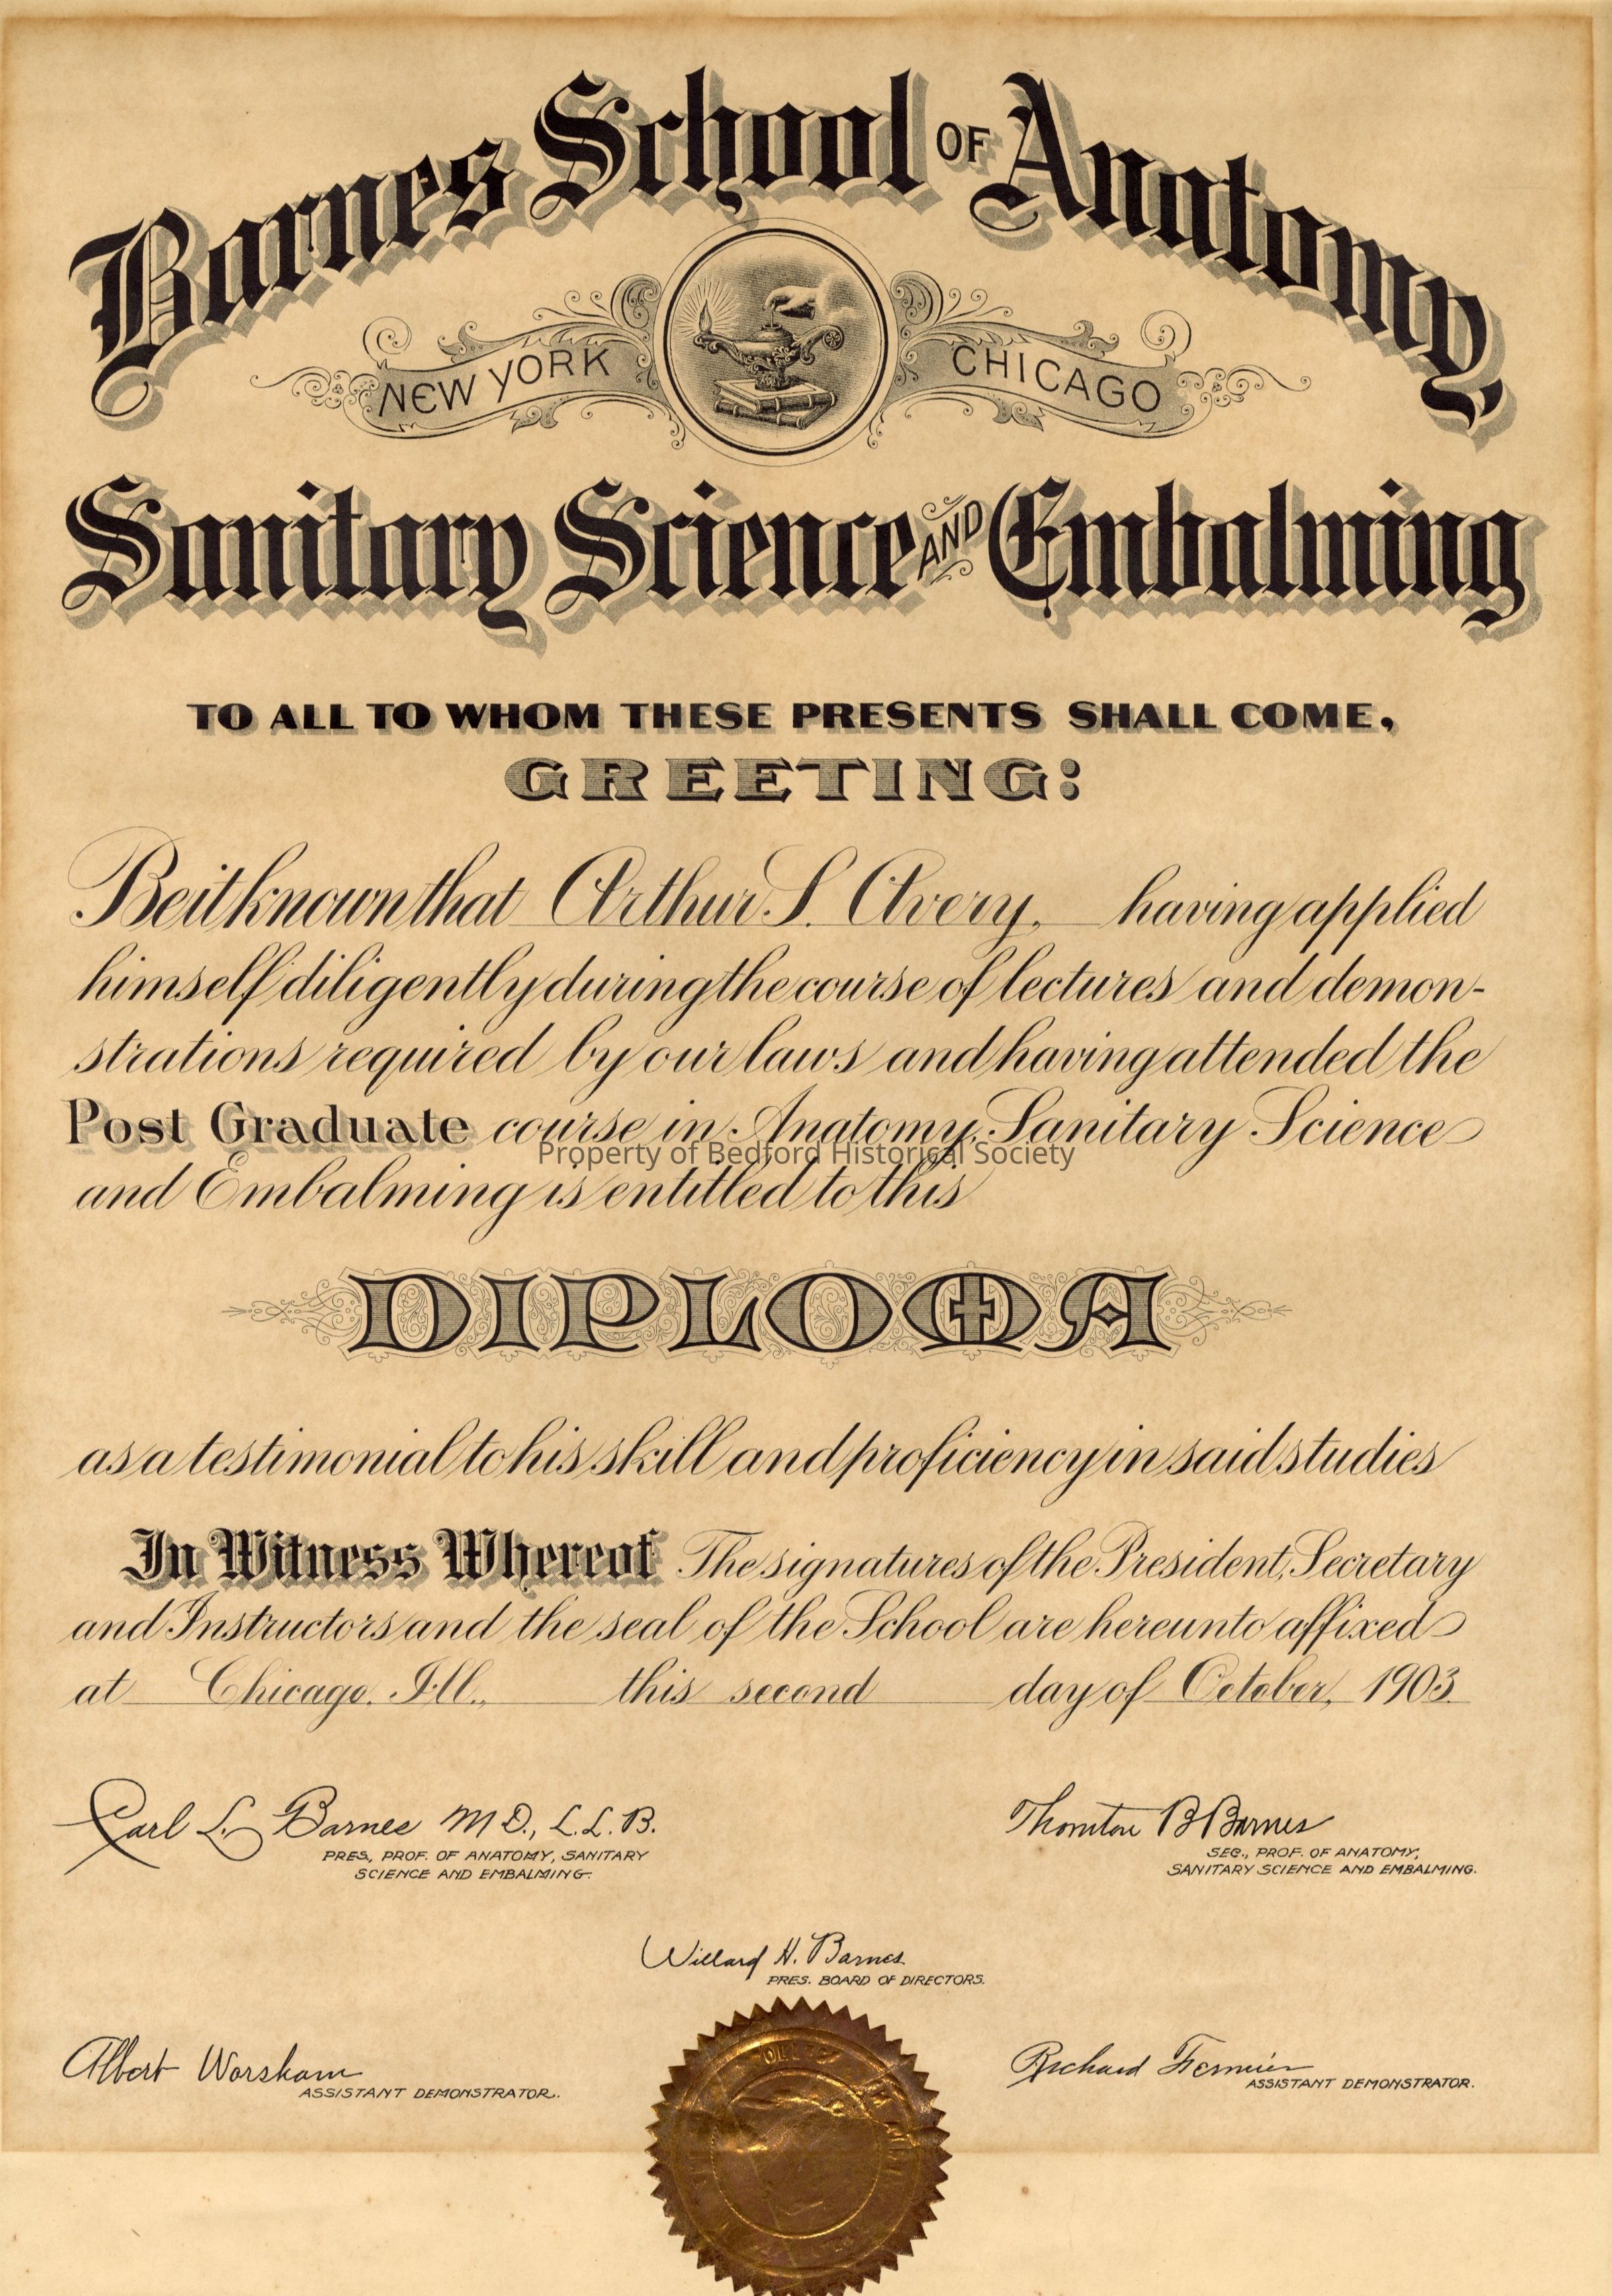 Barnes School OF Anatomy
NEW YORK CHICAGO
Sanitary Science AND Embalming
TO ALL TO WHOM THESE PRESENTS SHALL COME,
GREETING:
Be it known that Arthur S. Avery, having applied
himself diligently during the course of lectures and demon-
strations required by our laws and having attended the
Post Graduate course in Anatomy, Sanitary Science
Property of Bedford Historical Society
and Embalming is entitled to this
DIPLOMA
as a testimonial to his skill and proficiency in said studies
In Witness Whereof The signatures of the President, Secretary
and Instructors and the seal of the School are hereunto affixed
at Chicago, Ill., this second day of October, 1903
Carl L. Barnes M.D., L.L.B.
PRES., PROF. OF ANATOMY, SANITARY
SCIENCE AND EMBALMING.
Thornton B Barnes
SEC., PROF. OF ANATOMY,
SANITARY SCIENCE AND EMBALMING.
Willard H. Barnes
PRES. BOARD OF DIRECTORS.
Albert Worsham
ASSISTANT DEMONSTRATOR.
Richard
ASSISTANT DEMONSTRATOR.